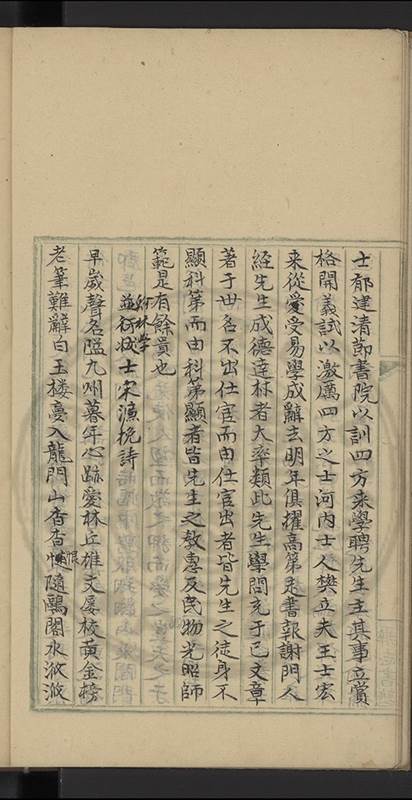 士郁建清節書院以訓四方来學聘先生主其事立賞
格開義試以激厲四方之士河内士人樊立夫王士宏
来從爰受易學成辭去明年俱擢高第走書報謝門人
經先生成德達材者大率類此先生學問充于已文章
著于世名不出仕宦而由仕宦出者皆先生之徒身不
顯科第而由科第顯者皆先生之教惠及民物光昭師
範是有餘貴也
翰林學
士宋濂挽詩
早歲聲名隘九州暮年心跡愛林丘雄文屡校黄金榜
老筆難辭白玉楼夢入龍門山杳杳恨隨鷗閣水㳽㳽